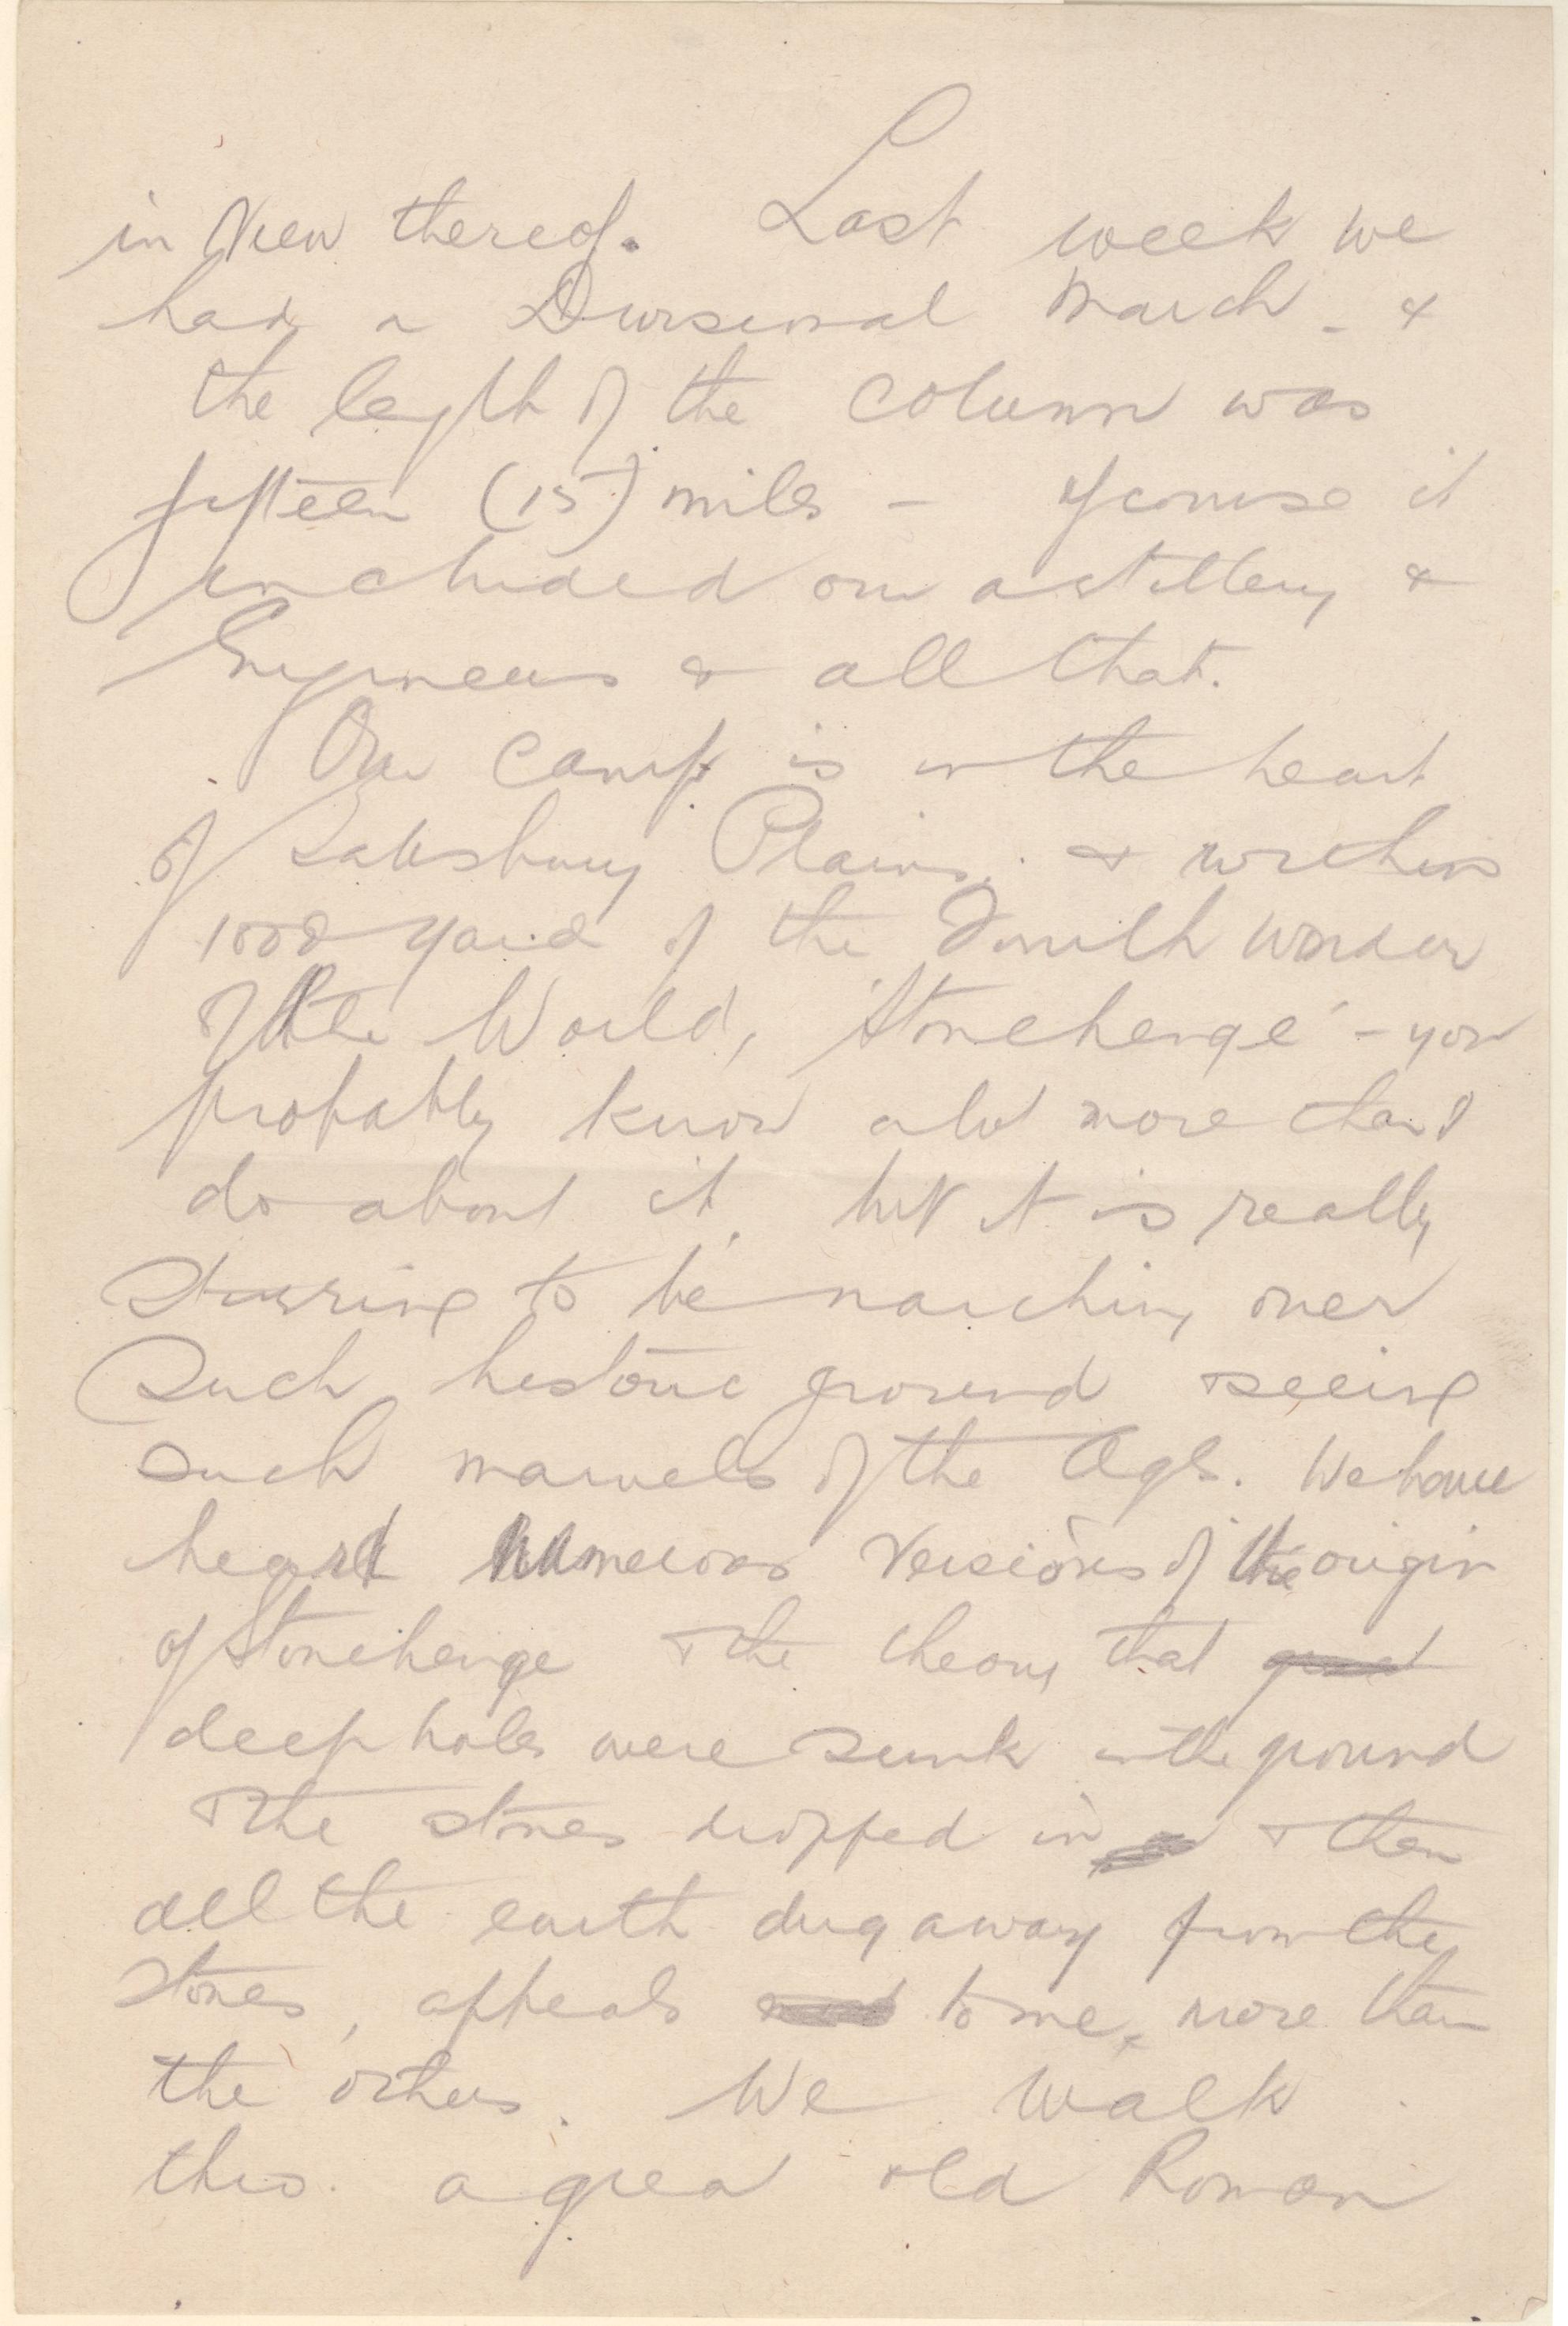 in View thereof. Last week we
had a Divisional March - &
the length of the column was
fifteen (15) miles - of course it
included our artillery &
Engineers & all that.
Our camp is in the heart
of Salisbury Plains. & within
1000 yard of the Fourth wonder
of the World, 'Stonehenge' - you
probably know alot more than I
do about it, but it is really
stirring to be marching over
such historic ground & seeing
such marvels of the Ages. We have
heard numerous versions of the origin
of Stonehenge & the theory that
deep holes were sunk in the ground
& the stones dropped in & then
all the earth dug away from the
stones, appeals to me, more than
the others. We walk
thro. a great old Roman